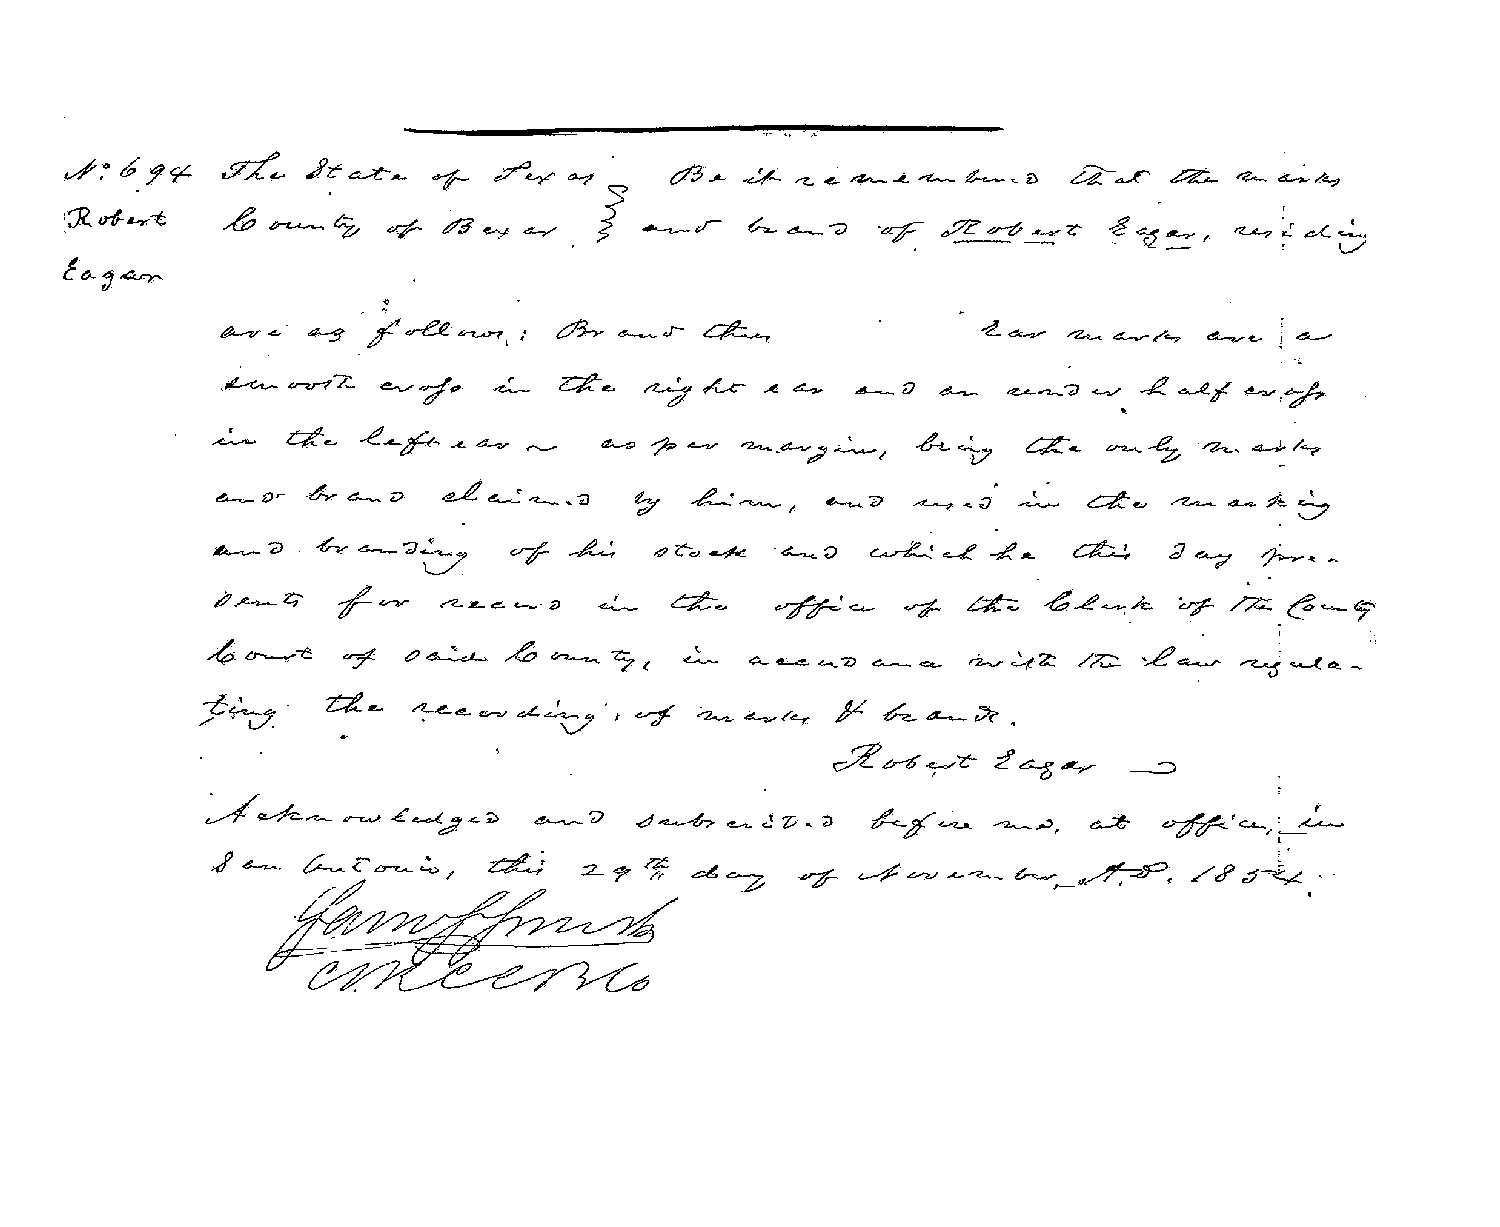 No. 694 The State of Texas } Be it remembered that the marks
Robert County of Bexar } and brand of Robert Eagar, residing
Eagar
are as follows: Brand thus Ear marks are a
smooth crops in the right ear and an under half crops
in the left ear ~ as per margin, being the only marks
and brand claimed by him, and used in the marking
and branding of his stock and which he this day pre-
sents for record in the office of the Clerk of the County
Court of said County, in accordance with the law regula-
ting the recording, of marks & brands.
Robert Eagar
Acknowledged and subscribed before me, at office, in
San Antonio, this 29th day of November, A.D. 1854.